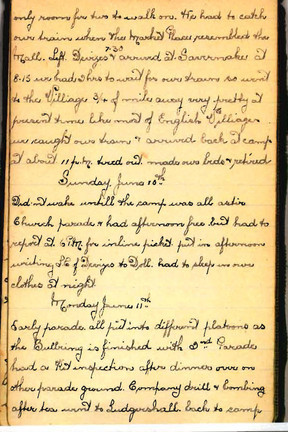 only room for two to walk on. He had to catch
our train where the Market Place resembled the
Mall. Left Devizes 7.30 & arrived at Savernake at
8.15 we had 2 hrs to wait for our train so went
to the Village 3/4 of miles away very pretty at
present time like most of English Villages
we caught our train & arrived back at camp
at about 11 p.m. tired out. made our beds & retired
Sunday June 10th
Did not wake untill the camp was all astir
Church parade & had afternoon free but had to
report at 6 P.M. for inline picket put in afternoon
writing of Devizes to Doll. had to sleep in our
clothes at night
Monday June 11th
Early parade all put into different platoons as
the Bullring is finished with 2nd Parade
had a Kit inspection after dinner over on
other parade ground. Company drill & bombing
after tea went to Ludgershall back to camp